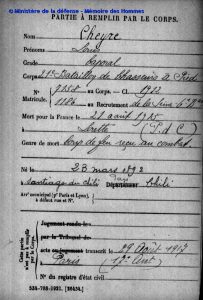 © Ministère de la défense - Mémoire des Hommes
PARTIE À REMPLIR PAR LE CORPS.
Nom Cheyre
Prénoms Louis
Grade Caporal
Corps 21e Bataillon de Chasseurs à Pied
N° 9258 au Corps. — Cl. 1912
Matricule. 1186 au Recrutement de la Seine 6e
Mort pour la France le 21 août 1915
à Lorette (P. d. C)
Genre de mort Coup de feu reçu au combat
Né le 23 mars 1892
à Santiago du Chili Département Chili
Arr' municipal (p' Paris et Lyon),
à défaut rue et N°.
Cette partie n'est pas à remplir par le Corps.
Jugement rendu le
par le Tribunal de
acte ou jugement transcrit le 29 Août 1917
à Paris 17e Arrt
N° du registre d'état civil
534-708-1921. [26434.]